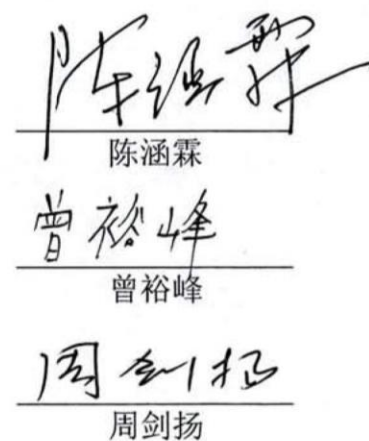 陈涵霖
陈涵霖
曾裕峰
曾裕峰
周剑扬
周剑扬